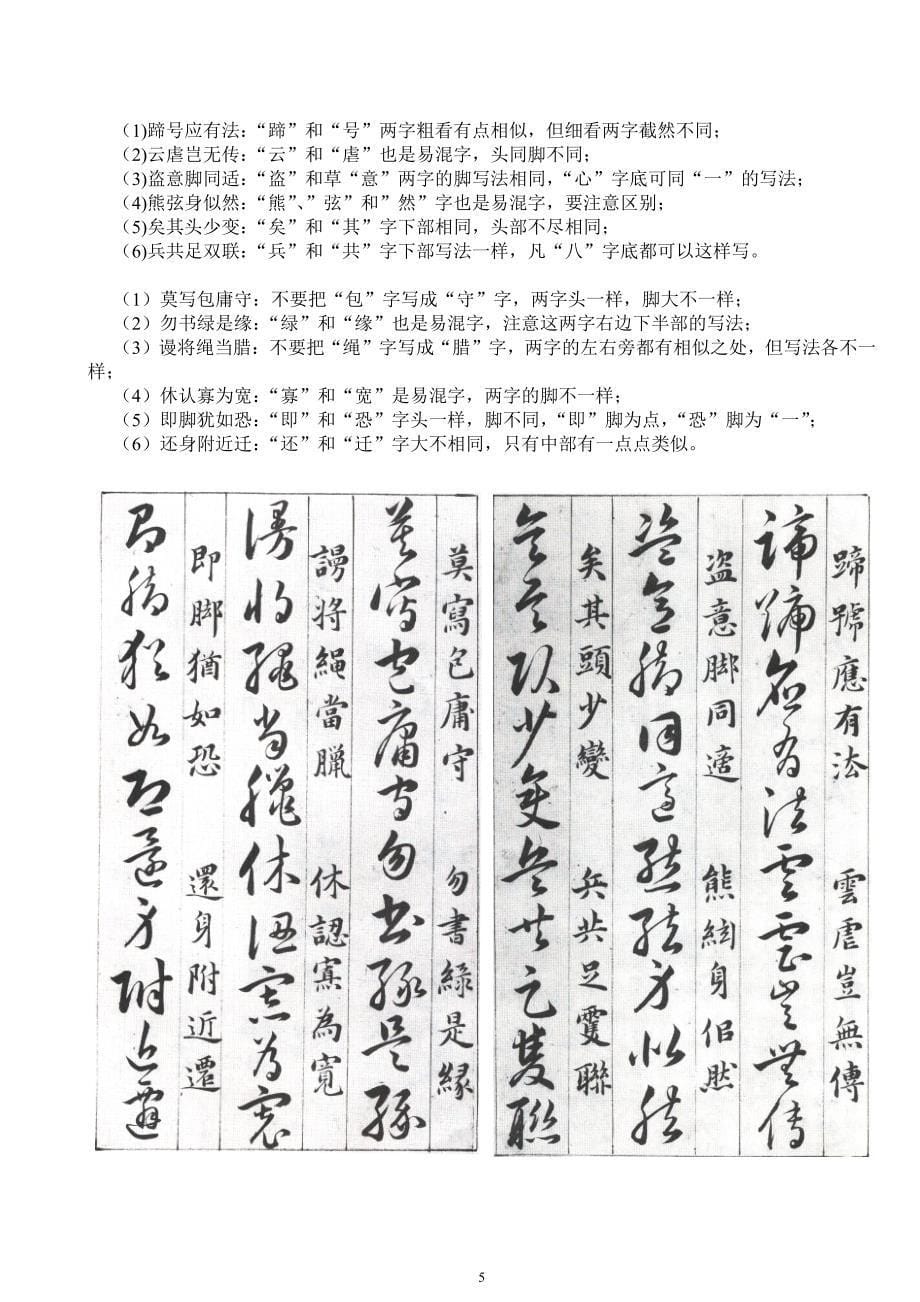 （1)蹄号应有法：“蹄”和“号”两字粗看有点相似，但细看两字截然不同；
（2)云虐岂无传：“云”和“虐”也是易混字，头同脚不同；
（3)盗意脚同适：“盗”和草“意”两字的脚写法相同，“心”字底可同“一”的写法；
（4)熊弦身似然：“熊”、”弦”和”然”字也是易混字，要注意区别；
（5)矣其头少变：“矣”和“其”字下部相同，头部不尽相同；
（6)兵共足双联：“兵”和“共”字下部写法一样，凡“八”字底都可以这样写。
（1）莫写包庸守：不要把“包”字写成“守”字，两字头一样，脚大不一样；
（2）勿书绿是缘：“绿”和“缘”也是易混字，注意这两字右边下半部的写法；
（3）谩将绳当腊：不要把“绳”字写成“腊”字，两字的左右旁都有相似之处，但写法各不一
样；
（4）休认寡为宽：“寡”和“宽”是易混字，两字的脚不一样；
（5）即脚犹如恐：“即”和“恐”字头一样，脚不同，“即”脚为点，“恐”脚为“一”；
（6）还身附近迁：“还”和“迁”字大不相同，只有中部有一点点类似。
蹄號應有法 雲虐豈無傳
蹄號應有法雲虐豈無傳
盗意脚同適 熊絃身佀然
盗意脚同適熊絃身似然
矣其頭少變 兵共足雙聯
矣其頭少變兵共足雙聯
莫寫包庸守 勿書綠是緣
莫寫包庸守勿書綠是緣
謾將繩當臘 休認寡為寬
謾將繩當臘休認寡為寬
即脚猶如恐 還身附近遷
即脚猶如恐還身附近遷
5